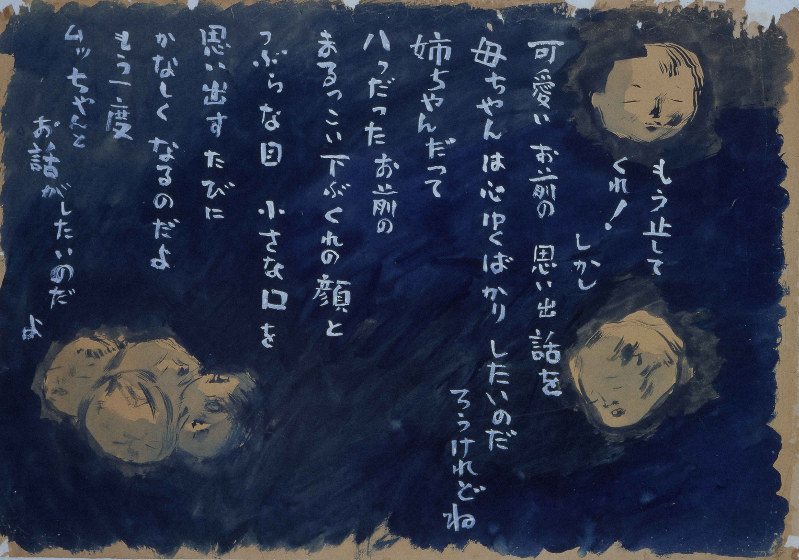 もう止して
くれ!
しかし
可愛い お前の 思い出話を
母ちゃんは心ゆくばかり したいのだ
ろうけれどね
姉ちゃんだって
八つだったお前の
まるっこい下ぶくれの顔と
つぶらな目 小さな口を
思い出すたびに
かなしくなるのだよ
もう一度
ムッちゃんと
お話がしたいのだ
よ